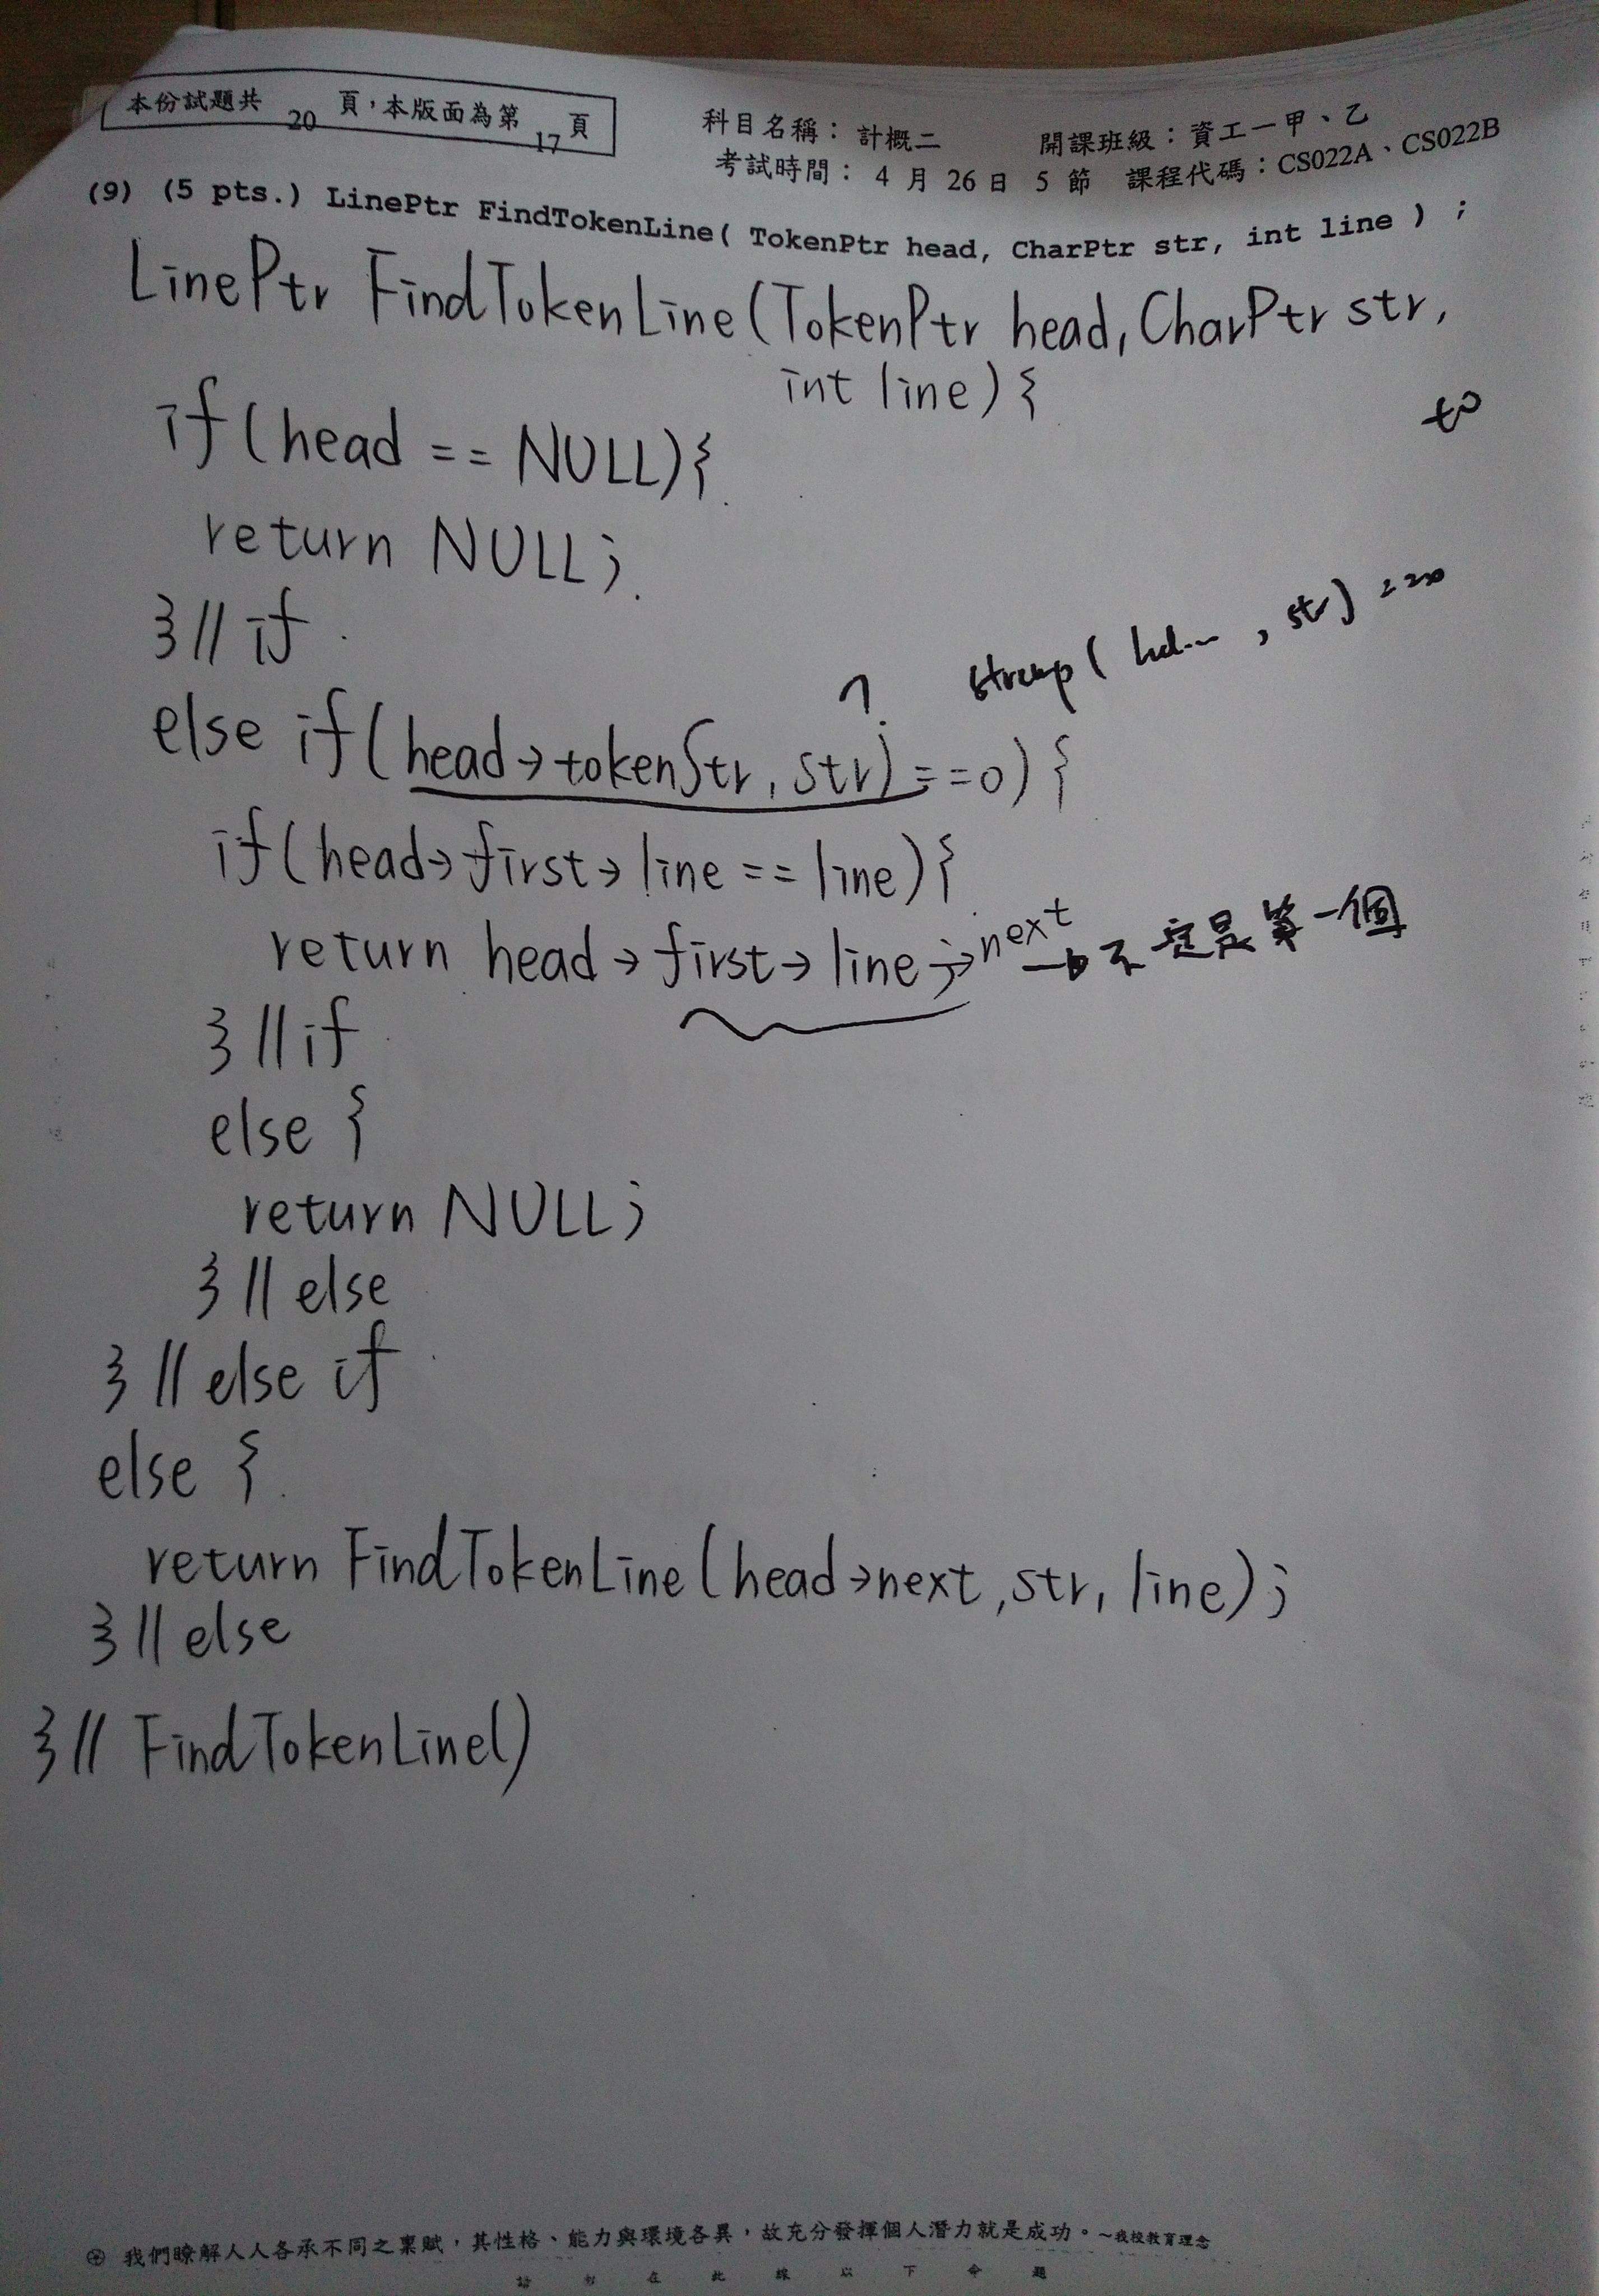 本份試題共 20 頁，本版面為第 17 頁
科目名稱：計概二 開課班級：資工一甲、乙
考試時間：4 月 26 日 5 節 課程代碼：CS022A、CS022B
(9) (5 pts.) LinePtr FindTokenLine( TokenPtr head, CharPtr str, int line ) ;
LinePtr FindTokenLine(TokenPtr head, CharPtr str,
int line) {
if(head == NULL){
return NULL;
} // if
strcmp( hd... , str) ==
?
else if(head→tokenStr, str) ==0) {
if(head→first→line == line){
return head→first→line;→next →不一定是第一個
} // if
else {
return NULL;
} // else
} // else if
else {
return FindTokenLine(head→next, str, line);
} // else
} // FindTokenLine()
我們瞭解人人各承不同之稟賦，其性格、能力與環境各異，故充分發揮個人潛力就是成功。~我校教育理念
請 勿 在 此 線 以 下 命 題